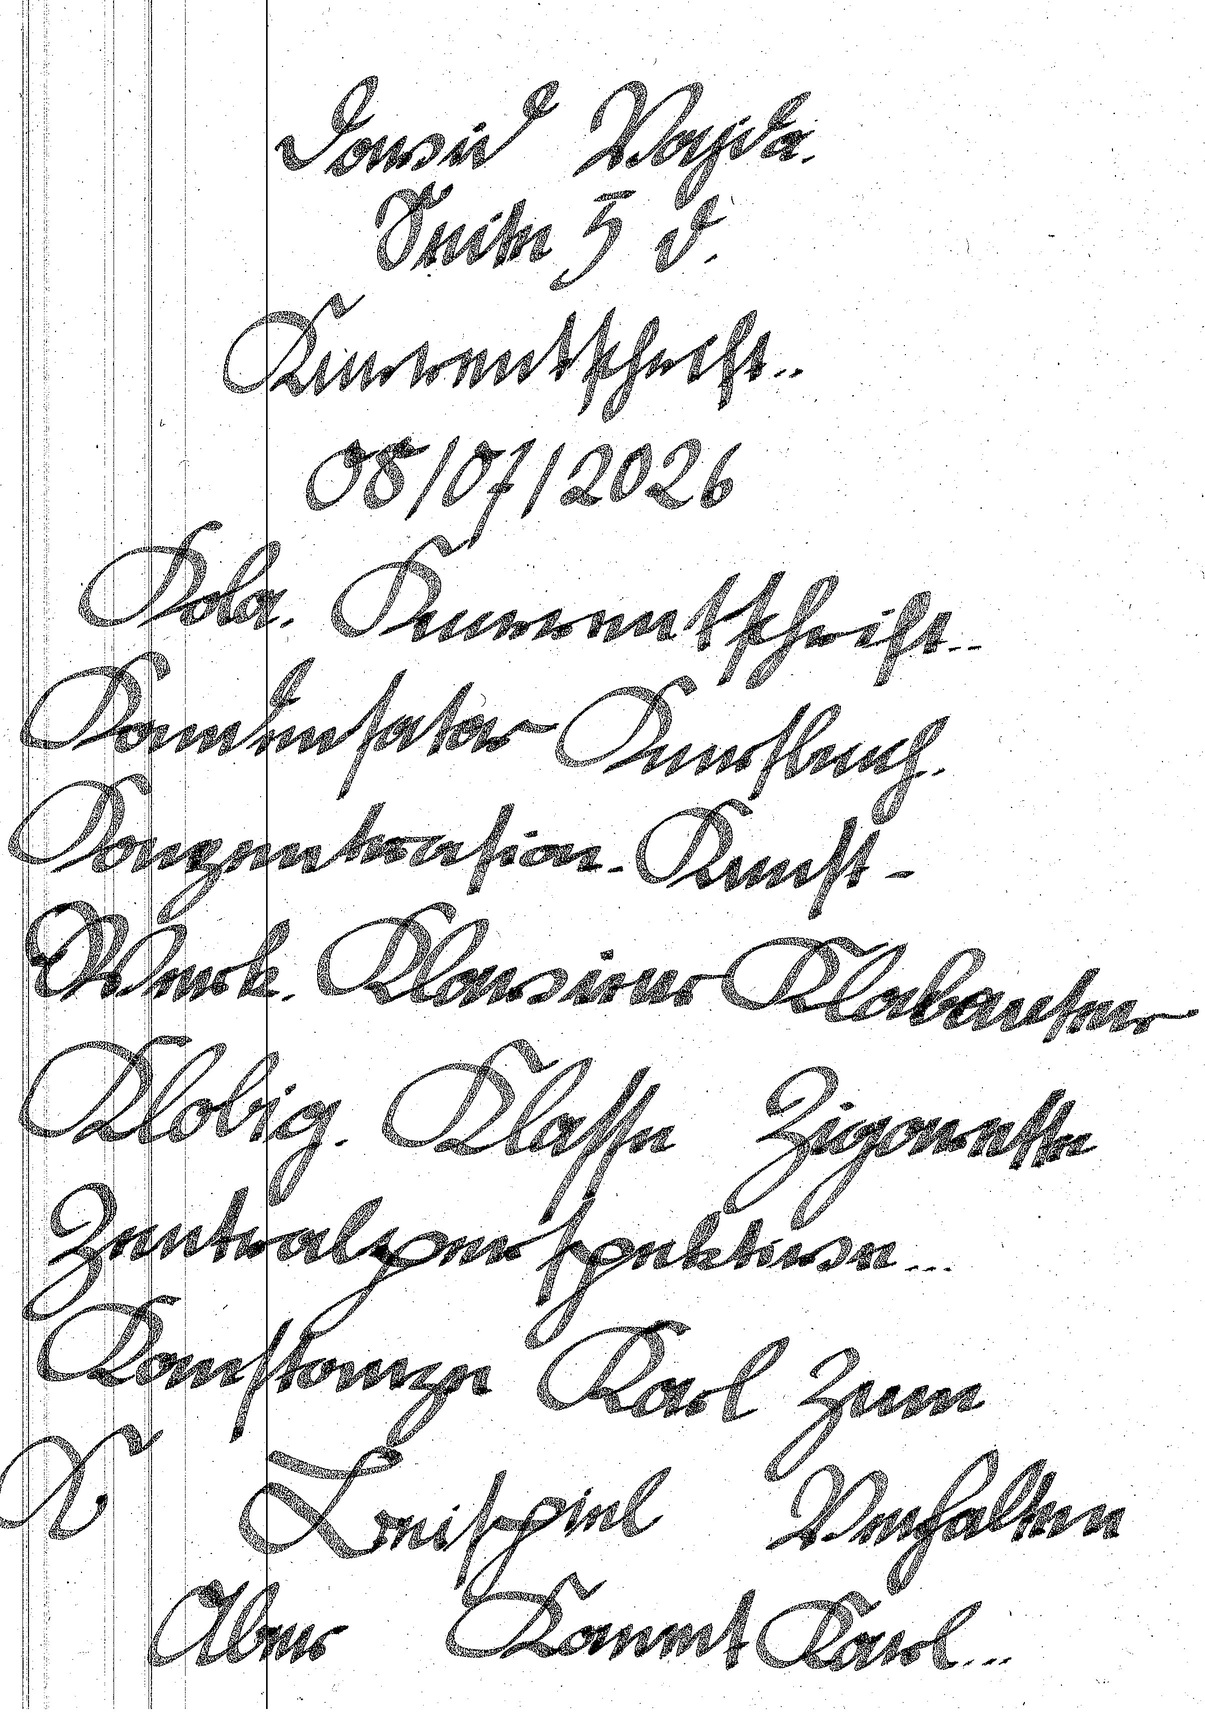 David Vajda.
Seite 5 d.
Kurrentschrift..
08/07/2026
Kola. Kurrentschrift..
Kondensator Kurfluch.
Konzentration. Kunst-
Werk. Klavierer Klabauter
Klobig. Klasse Zigarette
Zentralperspektive...
Konstanze Karl Zum
K. Beispiel Verhalten
Aber Kommt Karl...